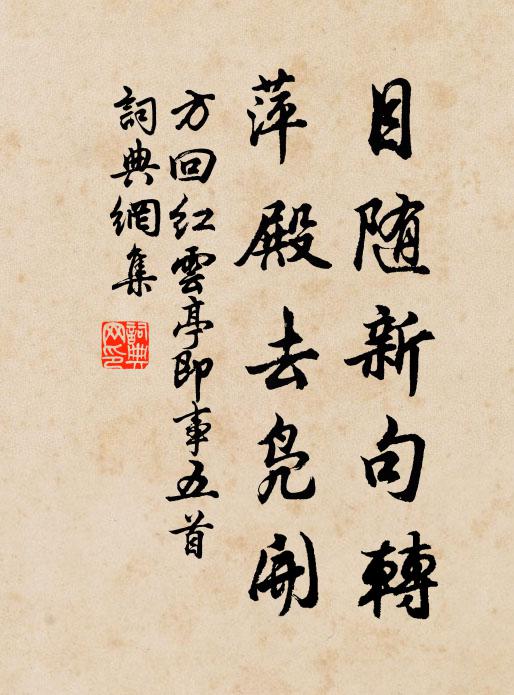 目随新句轉
萍殿去凫開
方回紅雲亭即事五首
詞典網集
詞典网印